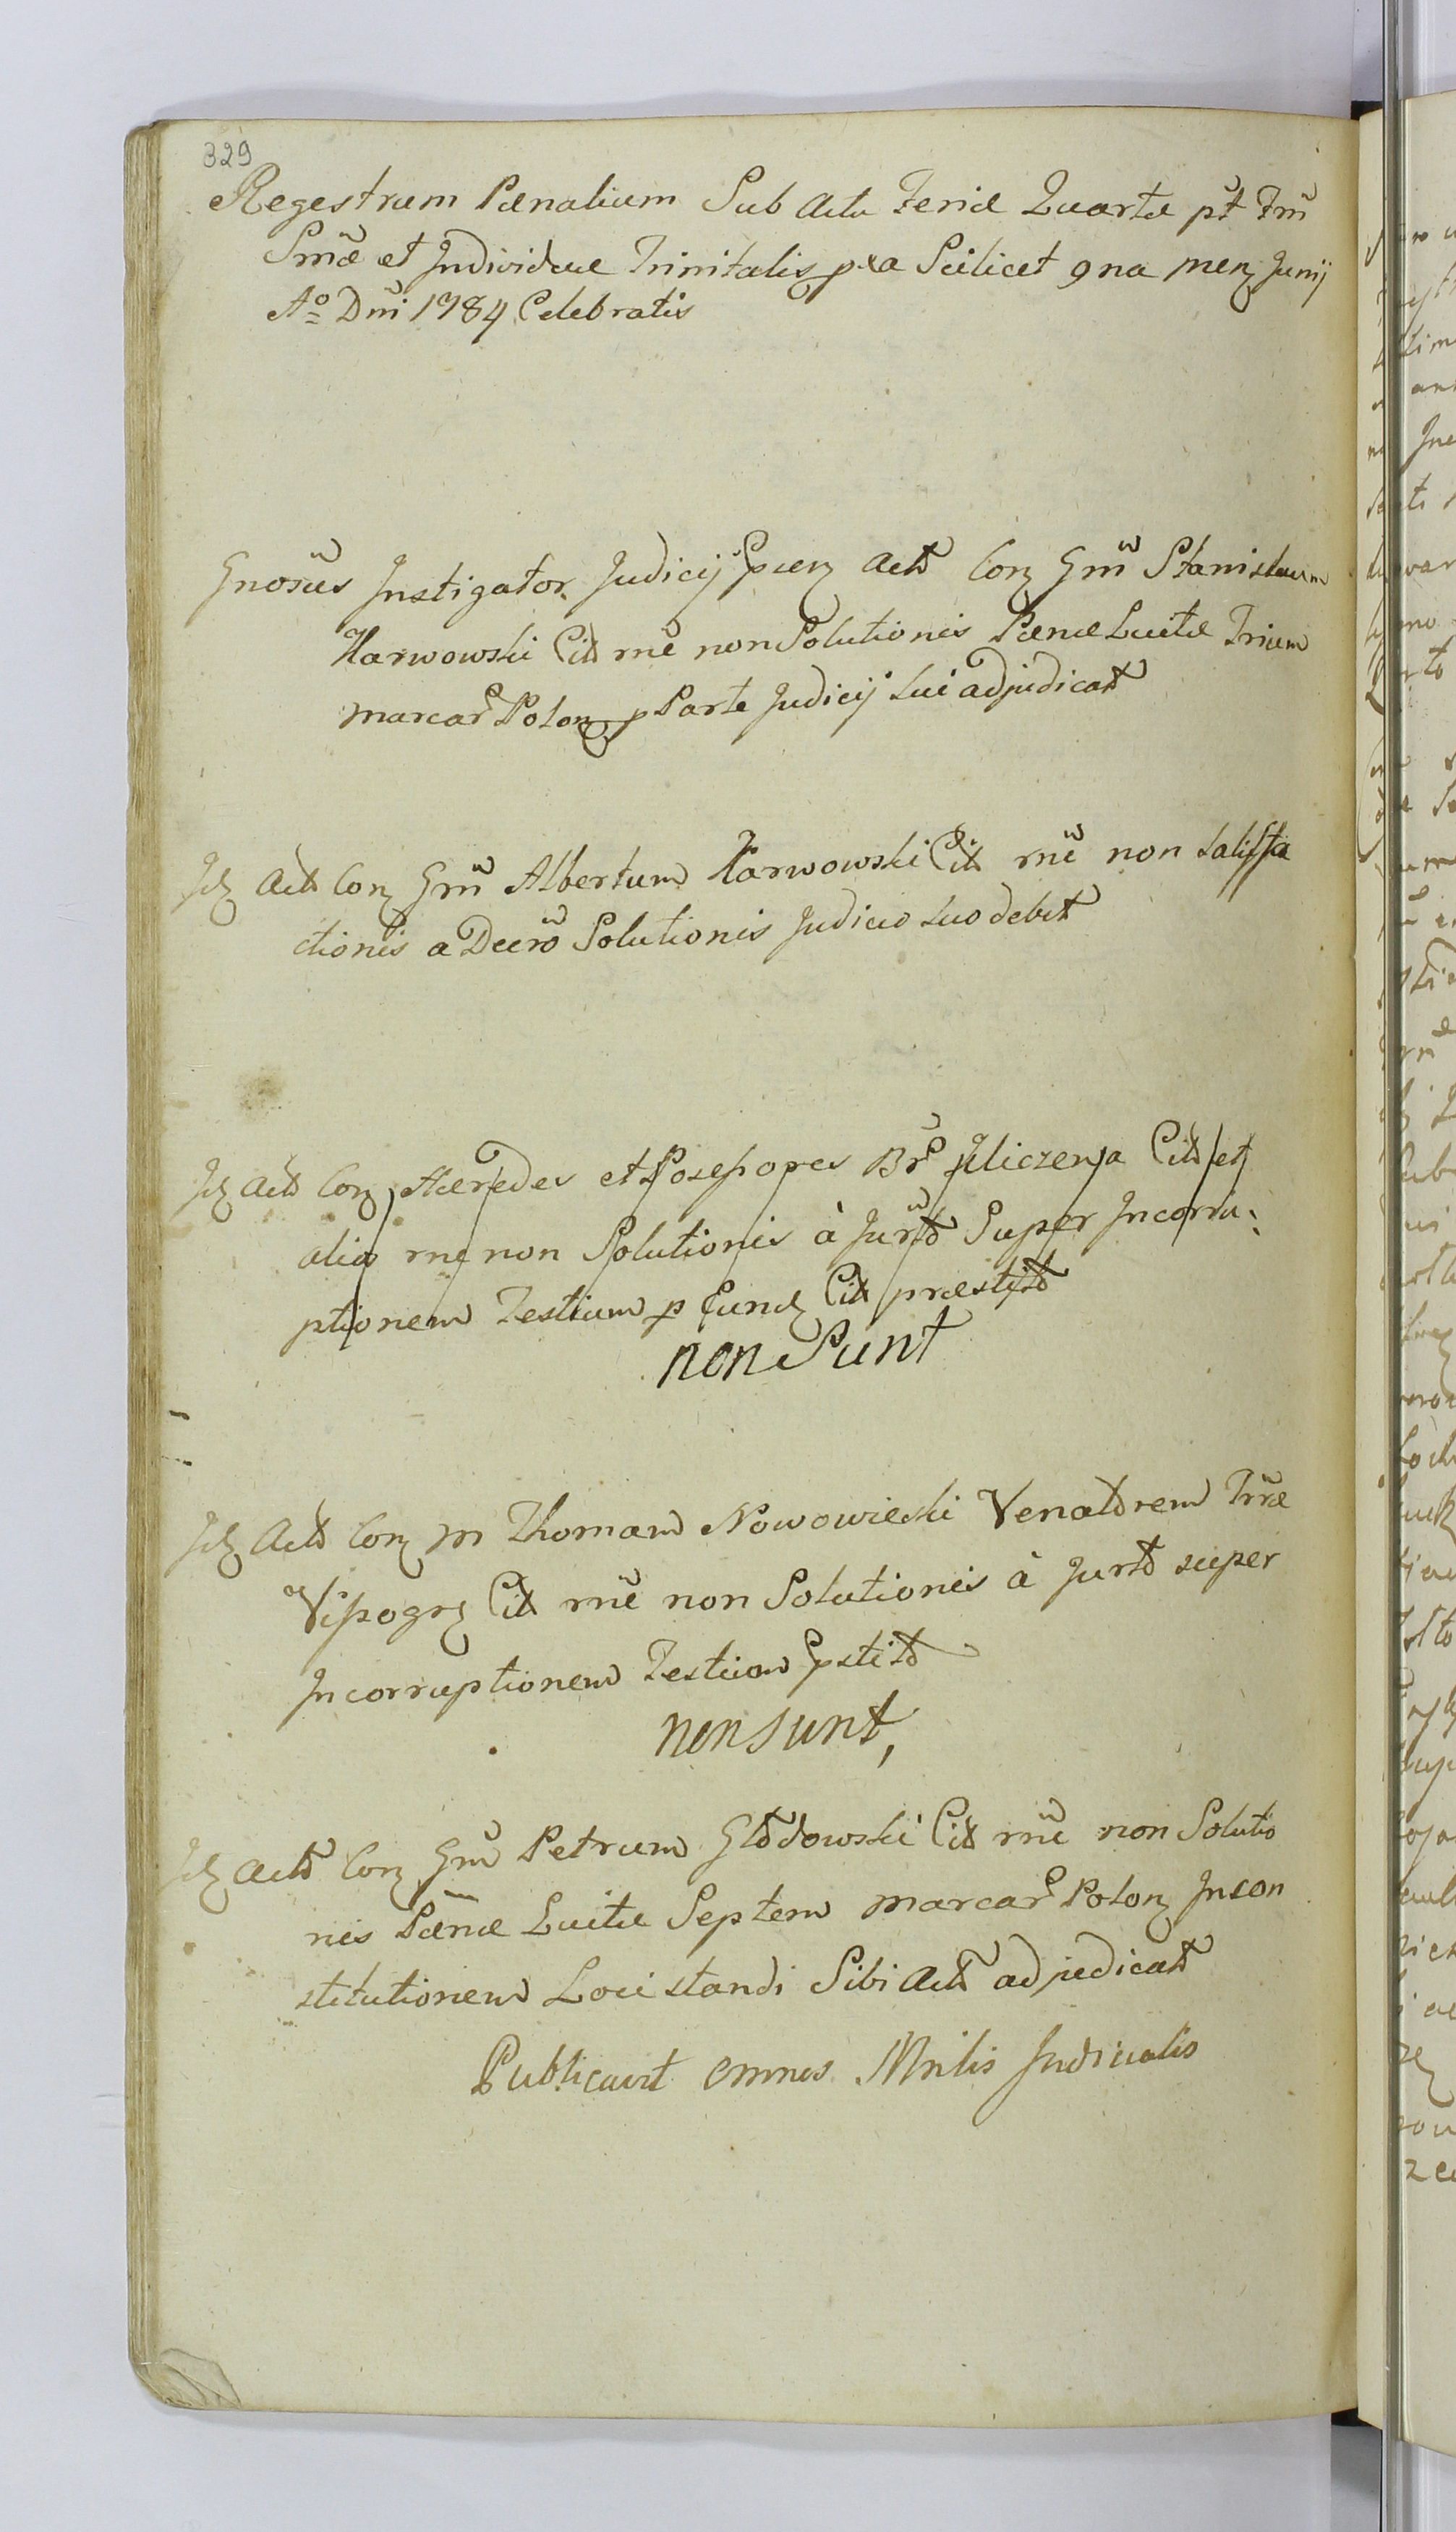 329
Regestrum Pænalium Sub Actu Feriæ Quartæ pt̃ Fm̃
Sm̃æ et Individuæ Trinitatis pxa Scilicet 9na menz Junij
Aº Dñi 1784 Celebratis
Gnosũs Instigator Judicij Actõ Conz Gm̃ Stanislaum
Karwowski Citt rñe non Solutionis Pænæ Luitæ Trium
marcar Polonz p Parte Judicij sui adjudicatt
Idz Actt Conz Gm̃ Albertum Karwowski Citt rñe non satisfa
ctionis a Decrõ Solutionis Judicio suo debitt
Idz Actt Conz Hæredes et Possessores Br̃ Jliczenja Citt et
alio rñe non Solutionis à Jurtõ Super Incorru-
ptionem Testium p Eundz Citt præstitõ
non Sunt
Idz Actt Conz M Thomam Nowowieski Venatorem Trr̃æ
Vissogrz Citt rñe non Solutionis à Jurtõ super
Incorruptionem Testium pstitõ
non sunt,
Idz Actt Conz Gm̃ Petrum Citt rñe non Solutio
nis Pænæ Luitæ Septem marcar Polonz Incon
stitutionem Loci standi Sibi Actt adjudicatt
Publicavit omnes Mnlis Judicialis